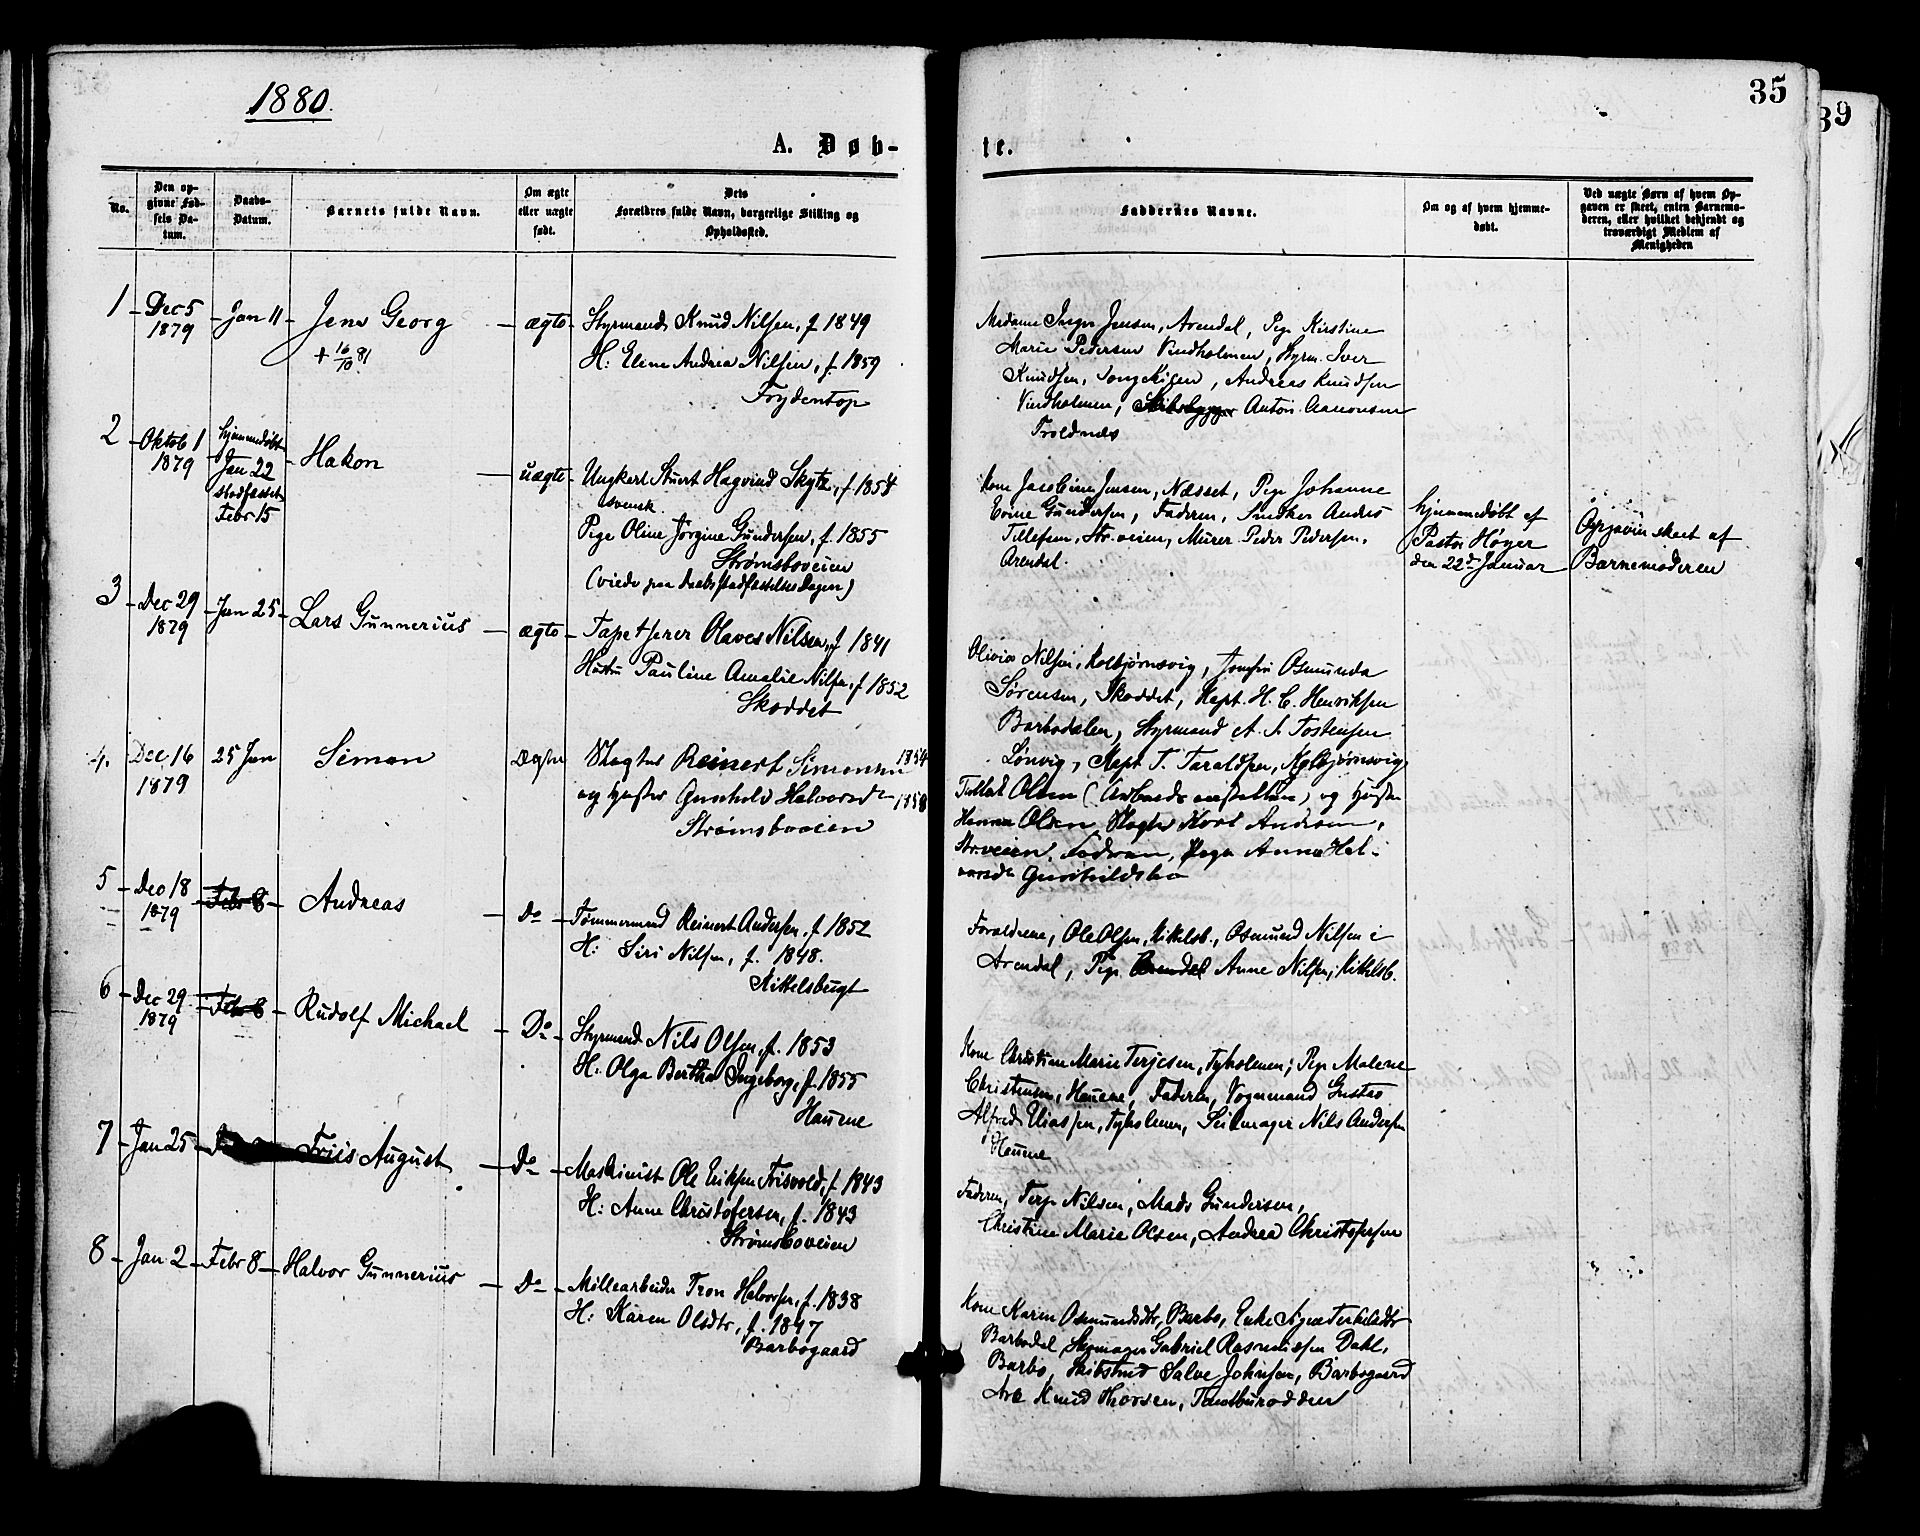 1880.
35
39
A. Døb-
te.
No.
Den op-
givne Fød-
sels Da-
tum.
Daabs-
Datum.
Barnets fulde Navn.
Om ægte
eller uægte
født.
Dets
Forældres fulde Navn, borgerlige Stilling og
Opholdssted.
Faddernes Navne.
Om og af hvem hjemme-
døbt.
Ved uægte Børn af hvem Op-
gaven er skeet, enten Barnemo-
deren, eller hvilket bekjendt og
troværdigt Medlem af
Menigheden
1
Dec 5
1879
Jan 11
Jens Georg
+ 16/10 81
ægte
Styrmand Knud Nilsen, f 1849
H: Eline Andrea Nilsen, f. 1859
Frydentop
Madame Inger Jensen, Arendal, Pige Kirstine
Marie Pedersen Vindholmen, Styrm. Iver
Knudsen, Andreas Knudsen
Vindholmen, Skibsbygger Anton Aanonsen
Troldnæs
2
Oktob 1
1879
hjemmedøbt
Jan 22
stadfæstet
Febr 15
Hakon
uægte
Ungkarl Stuert Hagvind Skytz, f 1854
svensk
Pige Oline Jørgine Gundersen, f. 1855
Strømsboveien
(viede paa Daabsstadfæstelses Dagen)
Kone Jacobine Jensen, Næsset, Pige Johanne
Evine Gundersen, Faderen, Snedker Anders
Tellefsen, Str. veien, Murer Peder Pedersen,
Arendal.
hjemmedøbt af
Pastor Høyer
den 22de Januar
Opgaven skeet af
Barnemoderen
3
Dec 29
1879
Jan 25
Lars Gunnerius
ægte
Tapetserer Olaves Nilsen, f 1841
Hustru Pauline Amalie Nilsen, f 1852
Skoddet
Olivia Nilsen, Kolbjørnsvig, Josefine Osmunda
Sørensen, Skoddet, Kapt. H. C. Henriksen
Barbodalen, Styrmand A. S. Tostensen
Lønvig, Kapt. T. Taraldsen, Kolbjørnsvig
4.
Dec 16
1879
25 Jan
Simon
Ægte
Slagter Reinert Simonsen 1854
og hustru Gunhild Halvorsdr 1858
Strømsboveien
Tallak Olsen (Arbeidsanstalten) og hustru
Hanna Olsen, Slagter Andersen,
Str.veien, Faderen, Pige Anna Hal-
vorsdr
5
Dec 18
1879
Febr 8
Andreas
Do
Tømmermand Reinert Andersen, f 1852
H: Siri Nilsen, f. 1848.
Kittelsbugt
Forældrene, Ole Olsen, Kittelsb., Osmund Nilsen i
Arendal, Pige Arendal Anne Nilsen, Kittelsb.
6
Dec 29
1879
Febr 8
Rudolf Michael
Do
Styrmand Nils Olsen, f. 1853
H: Olga Bertha Ingeborg, f. 1855
Havene
Kone Christiane Marie Terjesen, Tyholmen; Pige Malene
Christensen, Havene, Faderen, Vognmand Gustav
Alfred Eliassen, Tyholmen, Seilmager Nils Andersen
Havene
7
Jan 25
Friis August
Do
Maskinist Ole Eriksen Frisvold, f 1843
H: Anne Christofersen, f. 1843
Strømsboveien
Faderen, Terje Nilsen, Mads Gundersen,
Christine Marie Olsen, Andrea Christofersen
8
Jan 2
Febr 8
Halvor Gunnerius
Do
Møllearbeider Tron Halvorsen, f. 1838
H: Karen Olsdtr, f. 1847
Barbogaard
Kone Karen Osmundsdtr, Barbo, Enke Terkelsdtr
Barbodal, Skomager Gabriel Rasmussen Dahl,
Barbo, Salve Johnsen, Barbogaard
Arb Knud Thorsen,